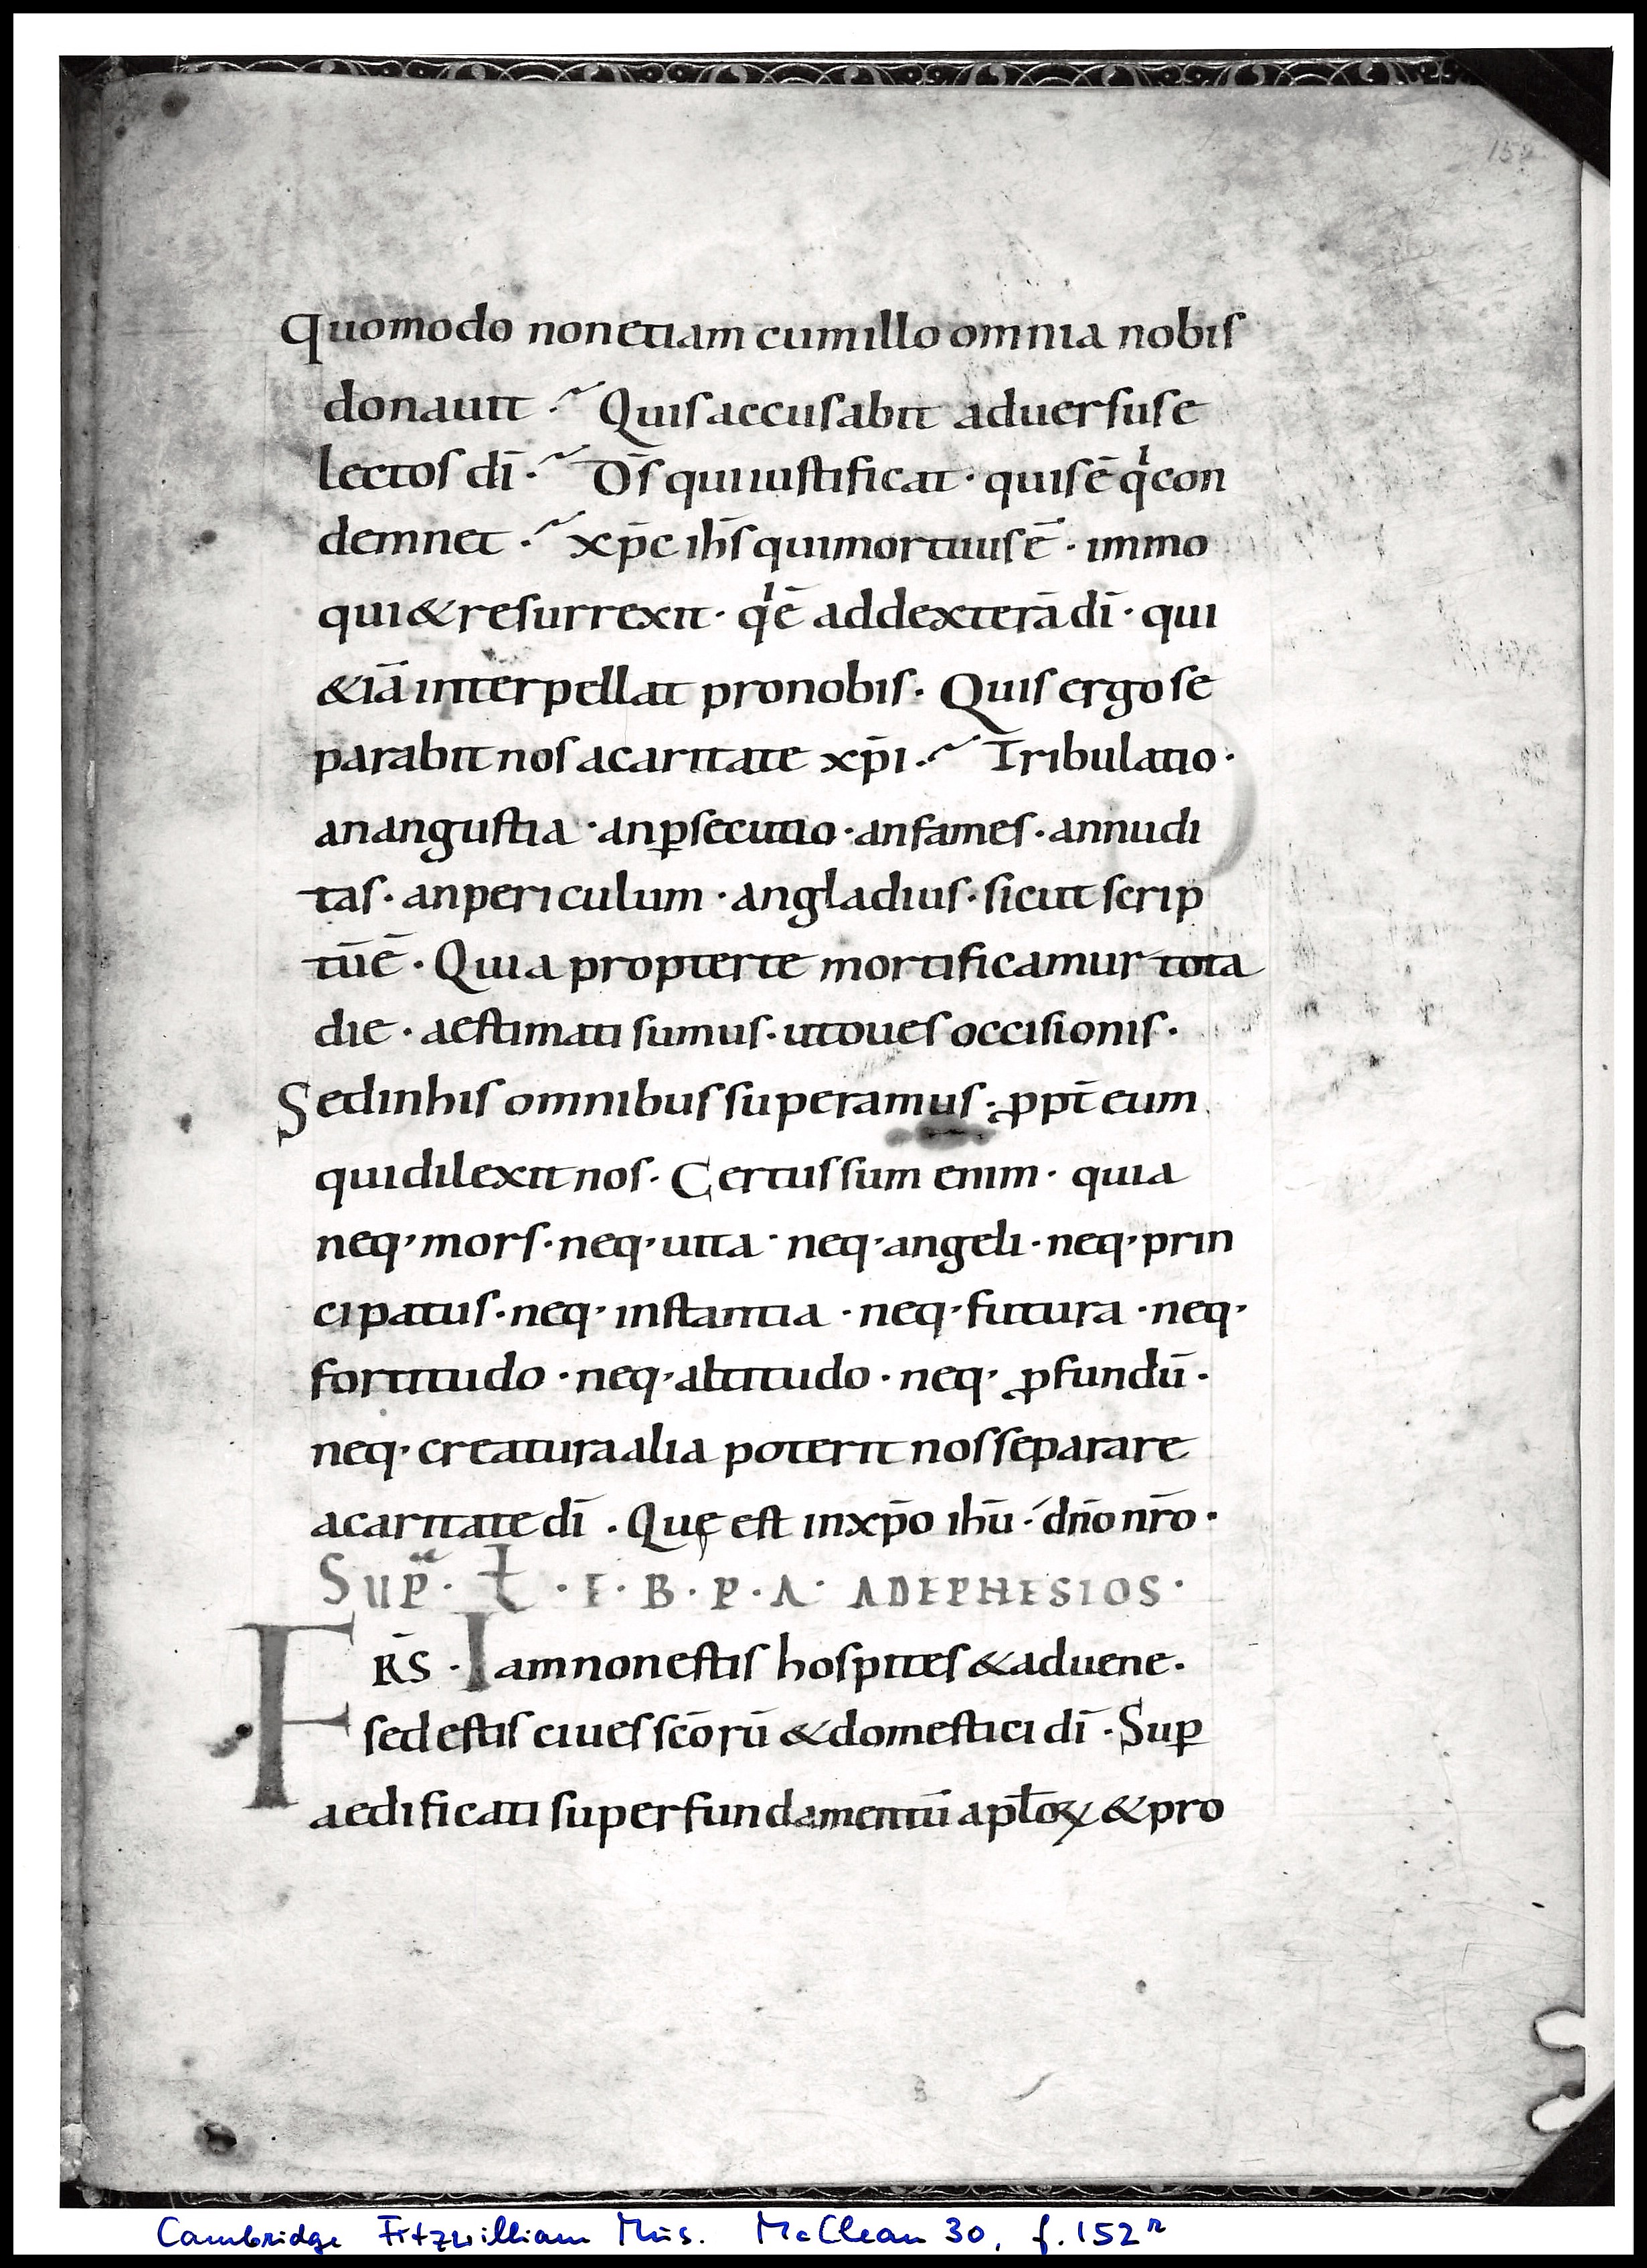 152
Quomodo non etiam cum illo omnia nobis
donauit · Quis accusabit aduersus e
lectos dī · D̄s qui iustificat · quis ē qͥ con
demnet · xp̄c ih̄s qui mortuus ē · immo
qui & resurrexit · qͥ ē ad dexterā dī · qui
&iā interpellat pro nobis · Quis ergo se
parabit nos a caritate xp̄i · Tribulatio ·
an angustia · an ꝑsecutio · an fames · an nudi
tas · an periculum · an gladius · sicut scrip
tū ē · Quia propter te mortificamur tota
die · aestimati sumus · ut oues occisionis ·
Sed in his omnibus superamus · ꝓpt̄ eum
qui dilexit nos · Certus sum enim · quia
neq· mors · neq· uita · neq· angeli · neq· prin
cipatus · neq· instantia · neq· futura · neq·
fortitudo · neq· altitudo · neq· ꝓfundū ·
neq· creatura alia poterit nos separare
a caritate dī · Quę est in xp̄o ih̄u · dn̄o nr̄o ·
· E · B · P · A · AD EPHESIOS ·
FR̄S · Iam non estis hospites & aduene ·
sed estis ciues sc̄orū & domestici dī · Suꝑ
aedificati super fundamentū apl̄oꝝ & pro
Cambridge Fitzwilliam Mus. McClean 30, f. 152r